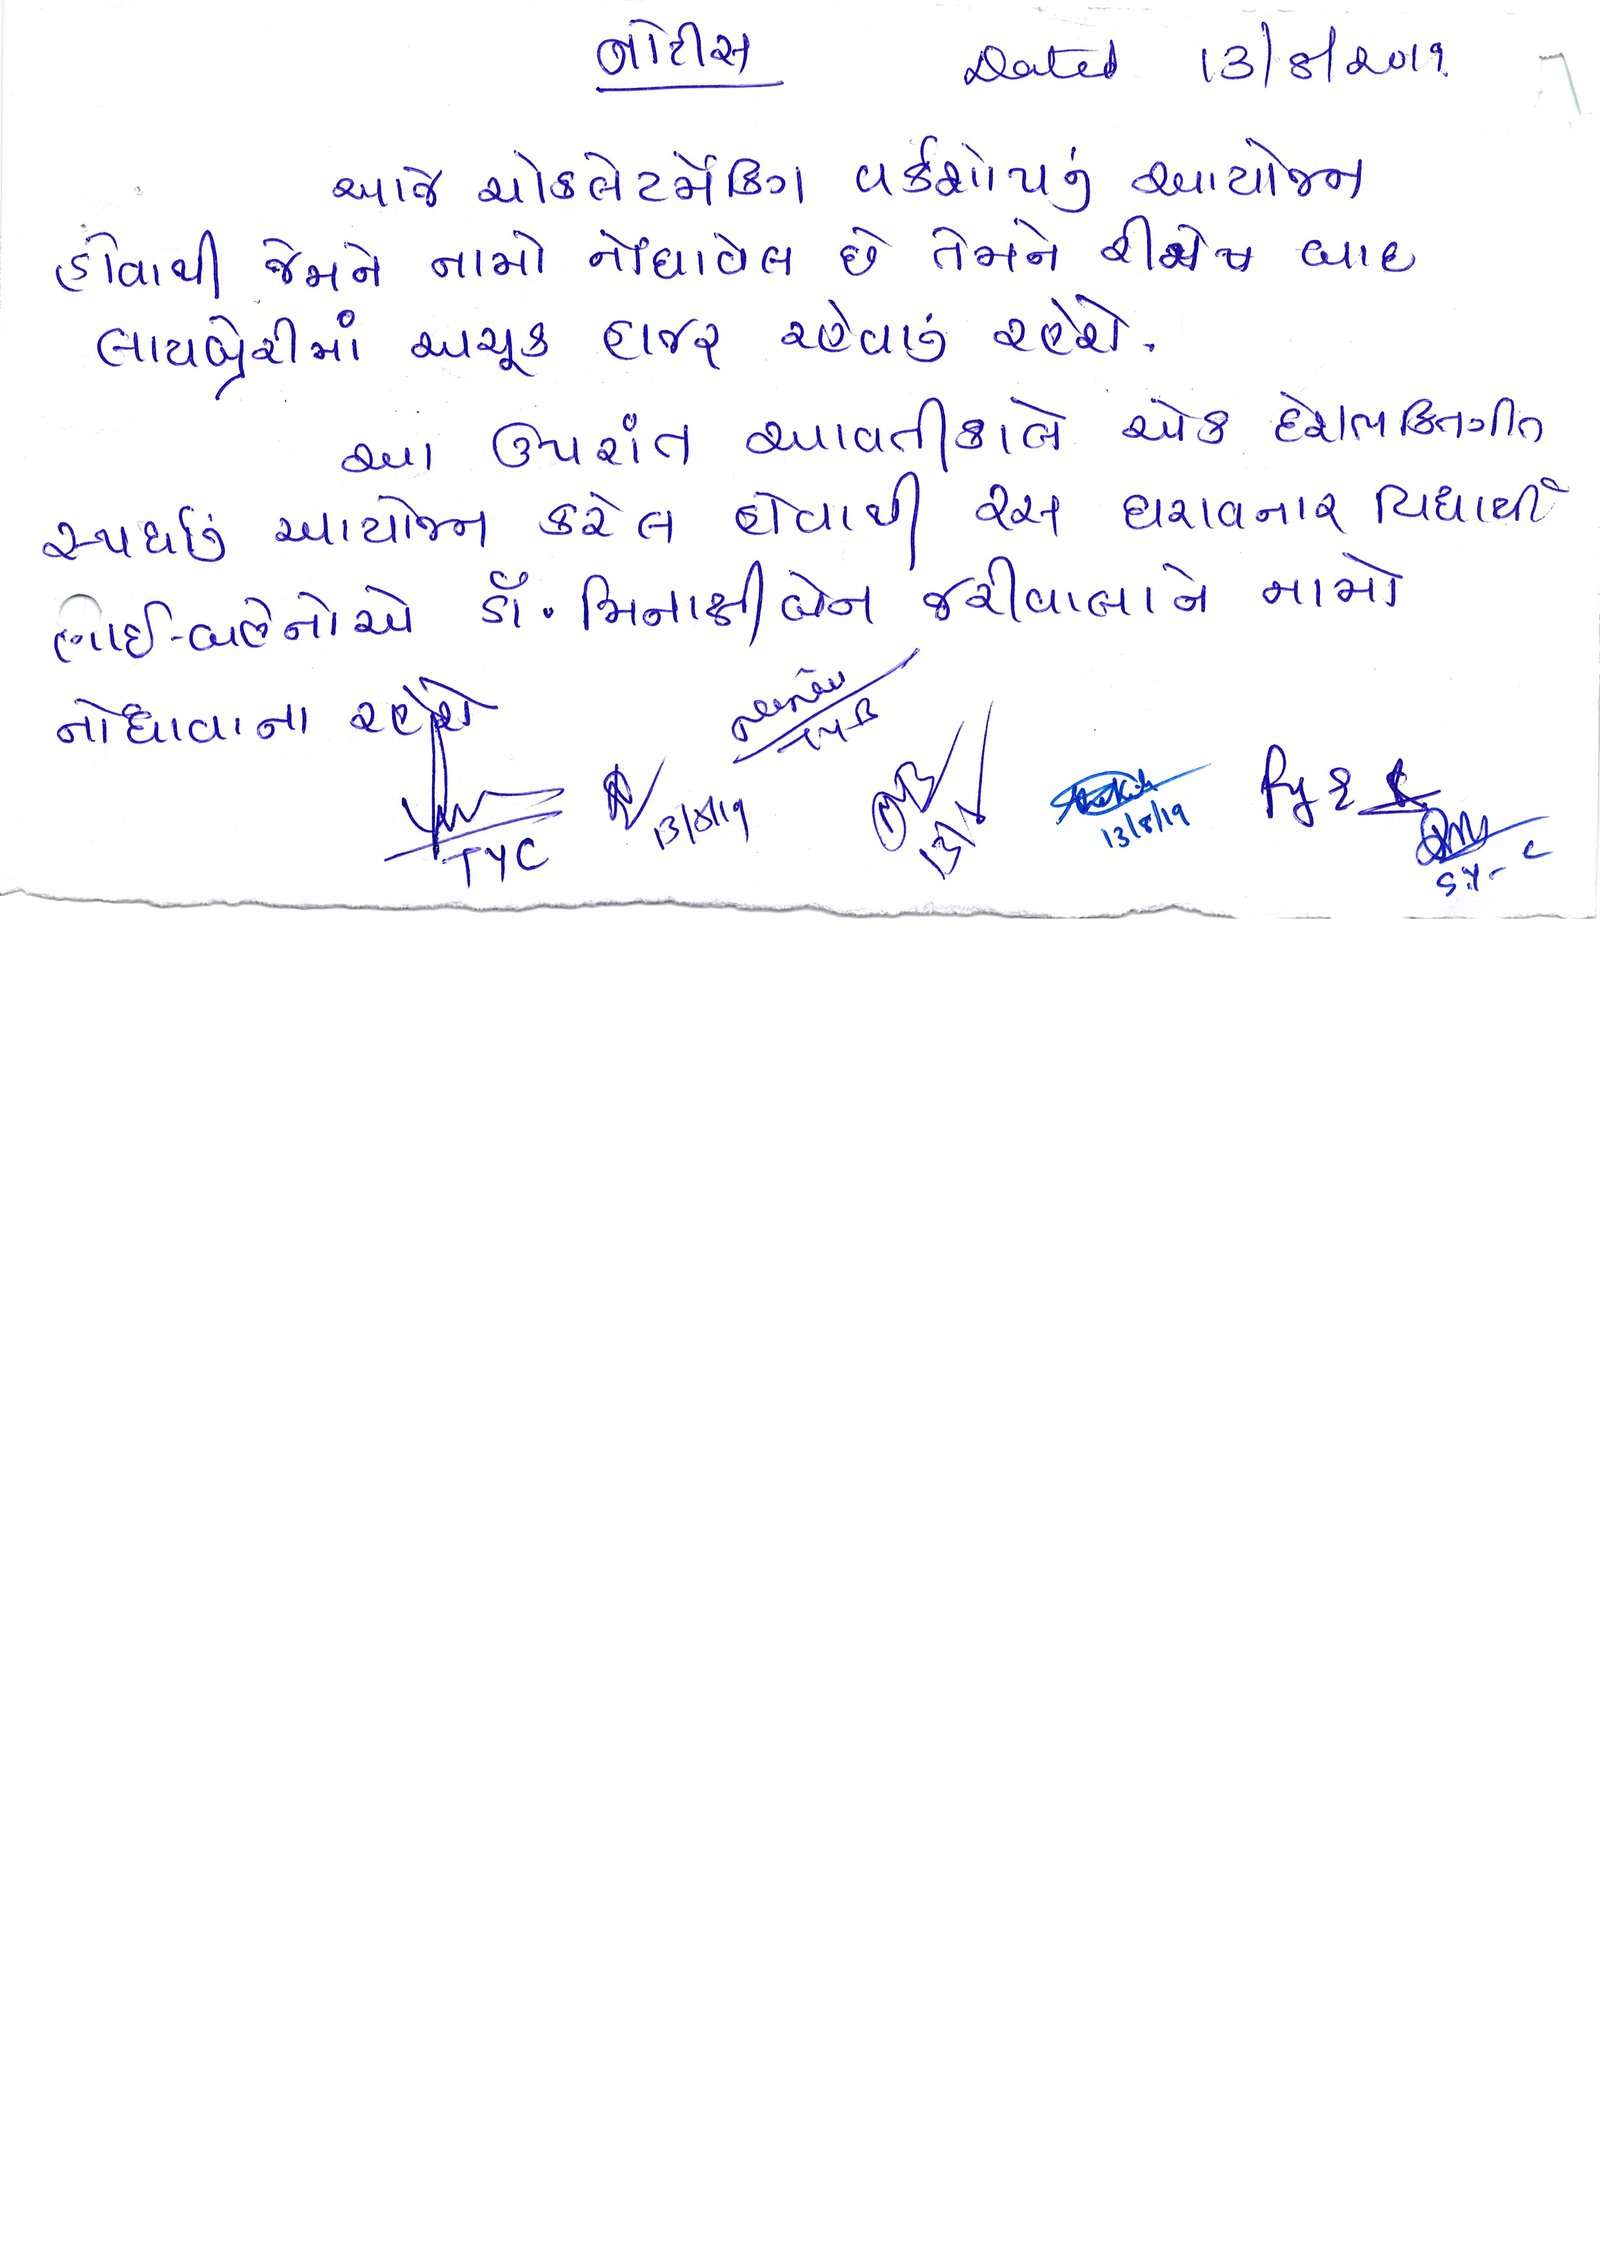 નોટીસ Dated 13/8/2019
આજે ચોકલેટમેકિંગ વર્કશોપનું આયોજન
હોવાથી જેમને નામો નોંધાવેલ છે તેમને રીસેચ બાદ
લાયબ્રેરીમાં અચૂક હાજર રહેવાનું રહેશે.
આ ઉપરાંત આવતીકાલે એક દેશભક્તિગીત
સ્પર્ધાનું આયોજન કરેલ હોવાથી રસ ધરાવનાર વિદ્યાર્થી
ભાઈ-બહેનોએ ડૉ. મિનાક્ષીબેન જરીવાલાને નામો
નોંધાવાના રહેશે
TYB
13/8/19 13/8/19
TYC
SY-C